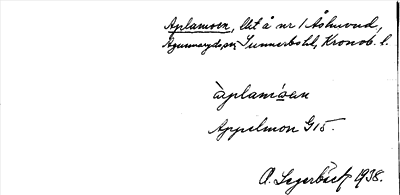 Aplamoen, lbt å nr 1 Åshuvud,
Agunnaryds sn, Sunnerbo hd, Kronob. l.
àplamó̀en
Appelmon G15.
O. Segerbäck 1938.